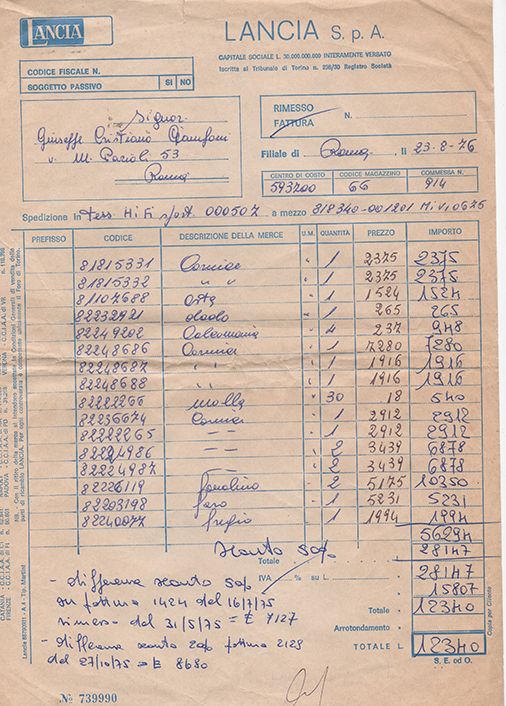 LANCIA
LANCIA S. p. A.
CAPITALE SOCIALE L. 30.000.000.000 INTERAMENTE VERSATO
Iscritta al Tribunale di Torino n. 236/30 Registro Società
CODICE FISCALE N.
SOGGETTO PASSIVO SI NO
Signor
Giuseffe Cristiano
v. M. Pacioli 53
Roma
RIMESSO
FATTURA N.
Filiale di Roma, li 23-8-76
CENTRO DI COSTO CODICE MAGAZZINO COMMESSA N.
593200 66 914
Spedizione In Tess Hi Fi s/ost 000507 a mezzo 818340-001201 Mi V10675
PREFISSO CODICE DESCRIZIONE DELLA MERCE U.M. QUANTITÀ PREZZO IMPORTO
81815331 Cornice " 1 2375 2375
81815332 " " " 1 2375 2375
81107688 asta " 1 1524 1524
82332921 dado " 1 265 265
82249202 " 4 237 948
82248686 Cornice " 1 7280 7280
82248687 " " " 1 1916 1916
82248688 " " " 1 1916 1916
82282266 molla " 30 18 540
82256674 Cornice " 1 2912 2912
82222265 — — " 1 2912 2912
82224986 — — " 2 3439 6878
82224987 — — " 2 3439 6878
82226119 fanalino " 2 5175 10350
82203198 faro " 1 5231 5231
82240077 fregio " 1 1994 1994
56294
Sconto 50%
Totale 28147
IVA % su L. 28147
15807
- differenza sconto 50%
su fattura 1424 del 16/7/75
rimesso del 31/5/75 = £ 7127
- Differenza sconto 20% fattura 2129
del 27/10/75 = £ 8680
Totale 12340
Arrotondamento
TOTALE L. 12340
S. E. od O.
Copia per Cliente
N° 739990
Lancia 88790001 - A 4 - Tip. Martini